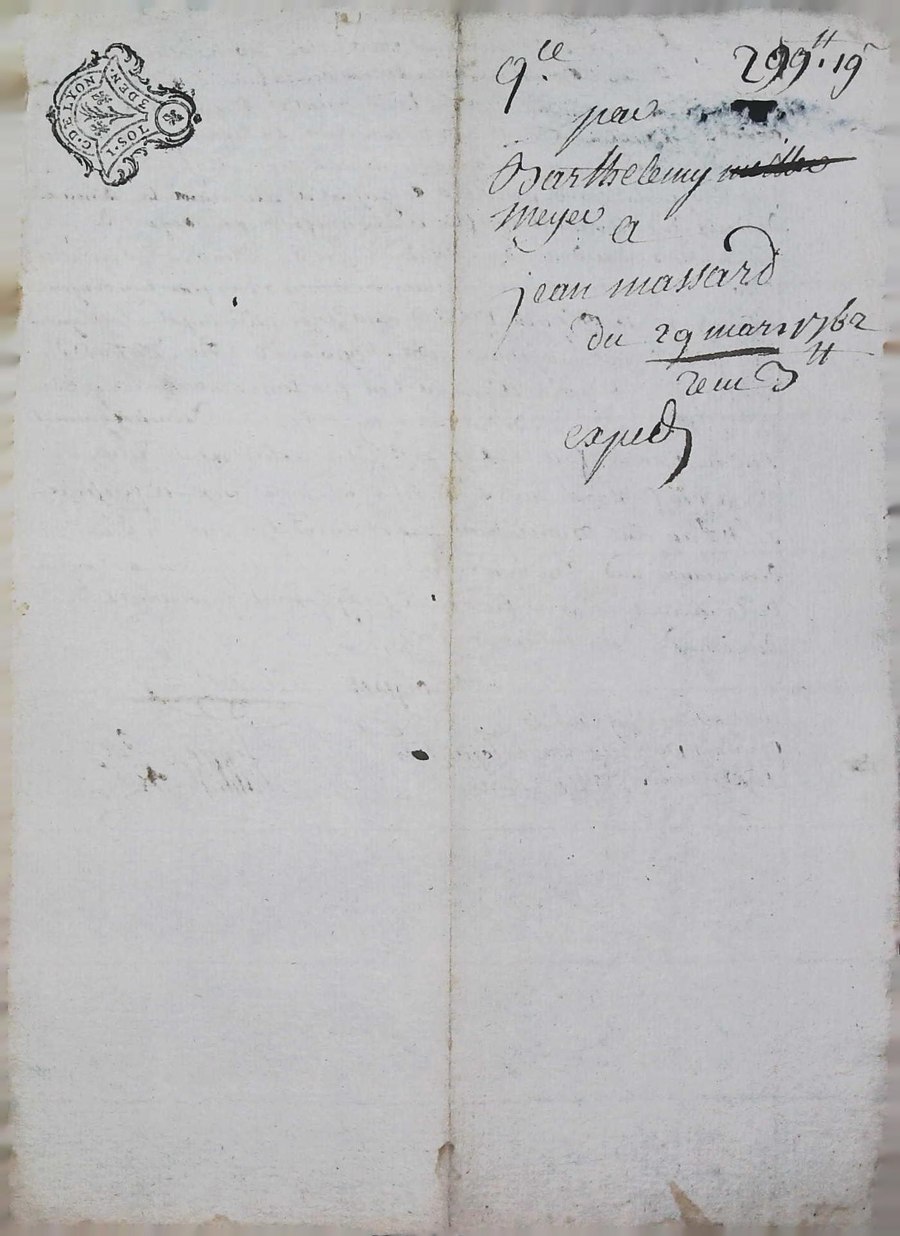 G. DE LYON
1. SOL.
3 DEN.
q.ce 299tt. 19s
par
Barthelemy
meyer
a
jean massard
du 29 mars 1762
3tt
exped